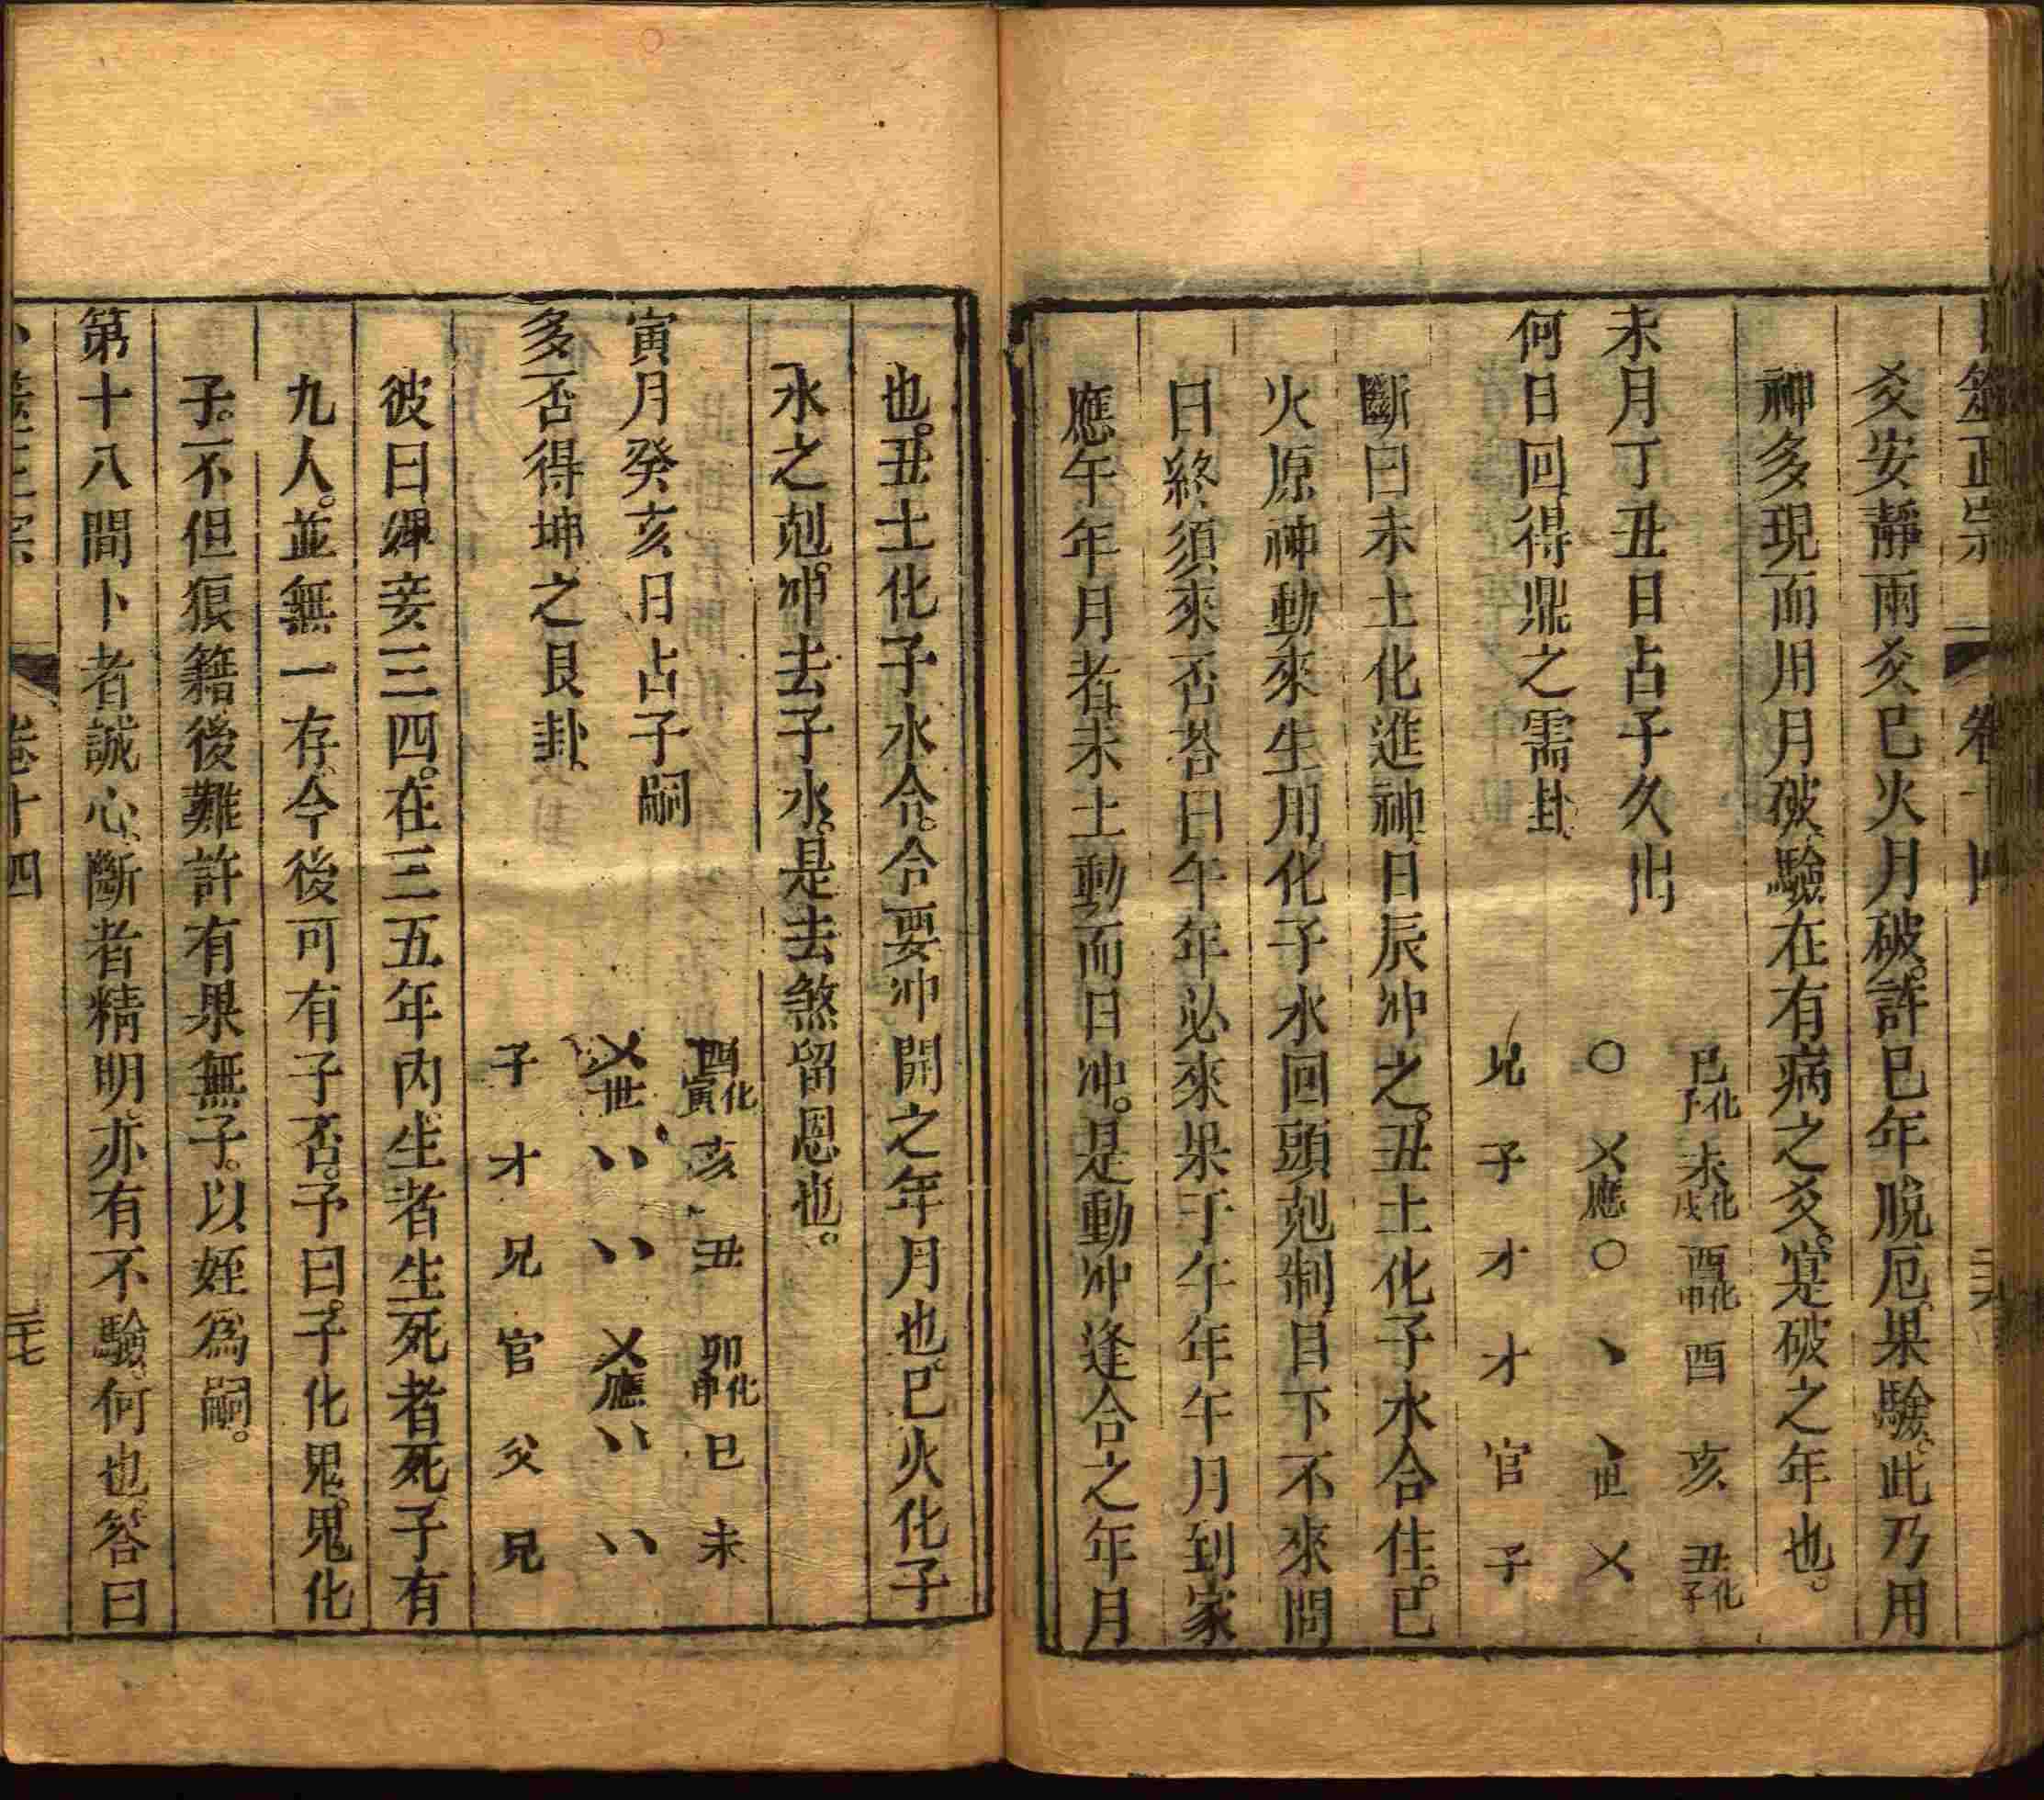 卜筮正宗 卷十四 三六
爻安靜兩爻巳火月破許巳年脫厄果驗此乃用
神多現而用月破驗在有病之爻寔破之年也
未月丁丑日占子久出
何日回得鼎之需卦
巳化子 未化戌 酉化申 酉 亥 丑化子
〇 乂應 〇 丶 丶世 乂
兄 子 才 才 官 子
斷曰未土化進神日辰冲之丑土化子水合住巳
火原神動來生用化子水回頭剋制目下不來問
日終須來否荅曰午年必來果于午年午月到家
應午年月者未土動而日冲是動冲逢合之年月
也丑土化子水合合要冲開之年月也巳火化子
水之剋冲去子水是去煞留恩也
寅月癸亥日占子嗣
多否得坤之艮卦
酉化寅 亥 丑 卯化申 巳 未
乂世 丷 丷 乂應 丷 丷
子 才 兄 官 父 兄
彼曰婢妾三四在三五年內生者生死者死子有
九人並無一存今後可有子否予曰子化鬼鬼化
子不但狠籍後難許有果無子以姪爲嗣
第十八問卜者誠心斷者精明亦有不驗何也答曰
卜筮正宗 卷十四 三七